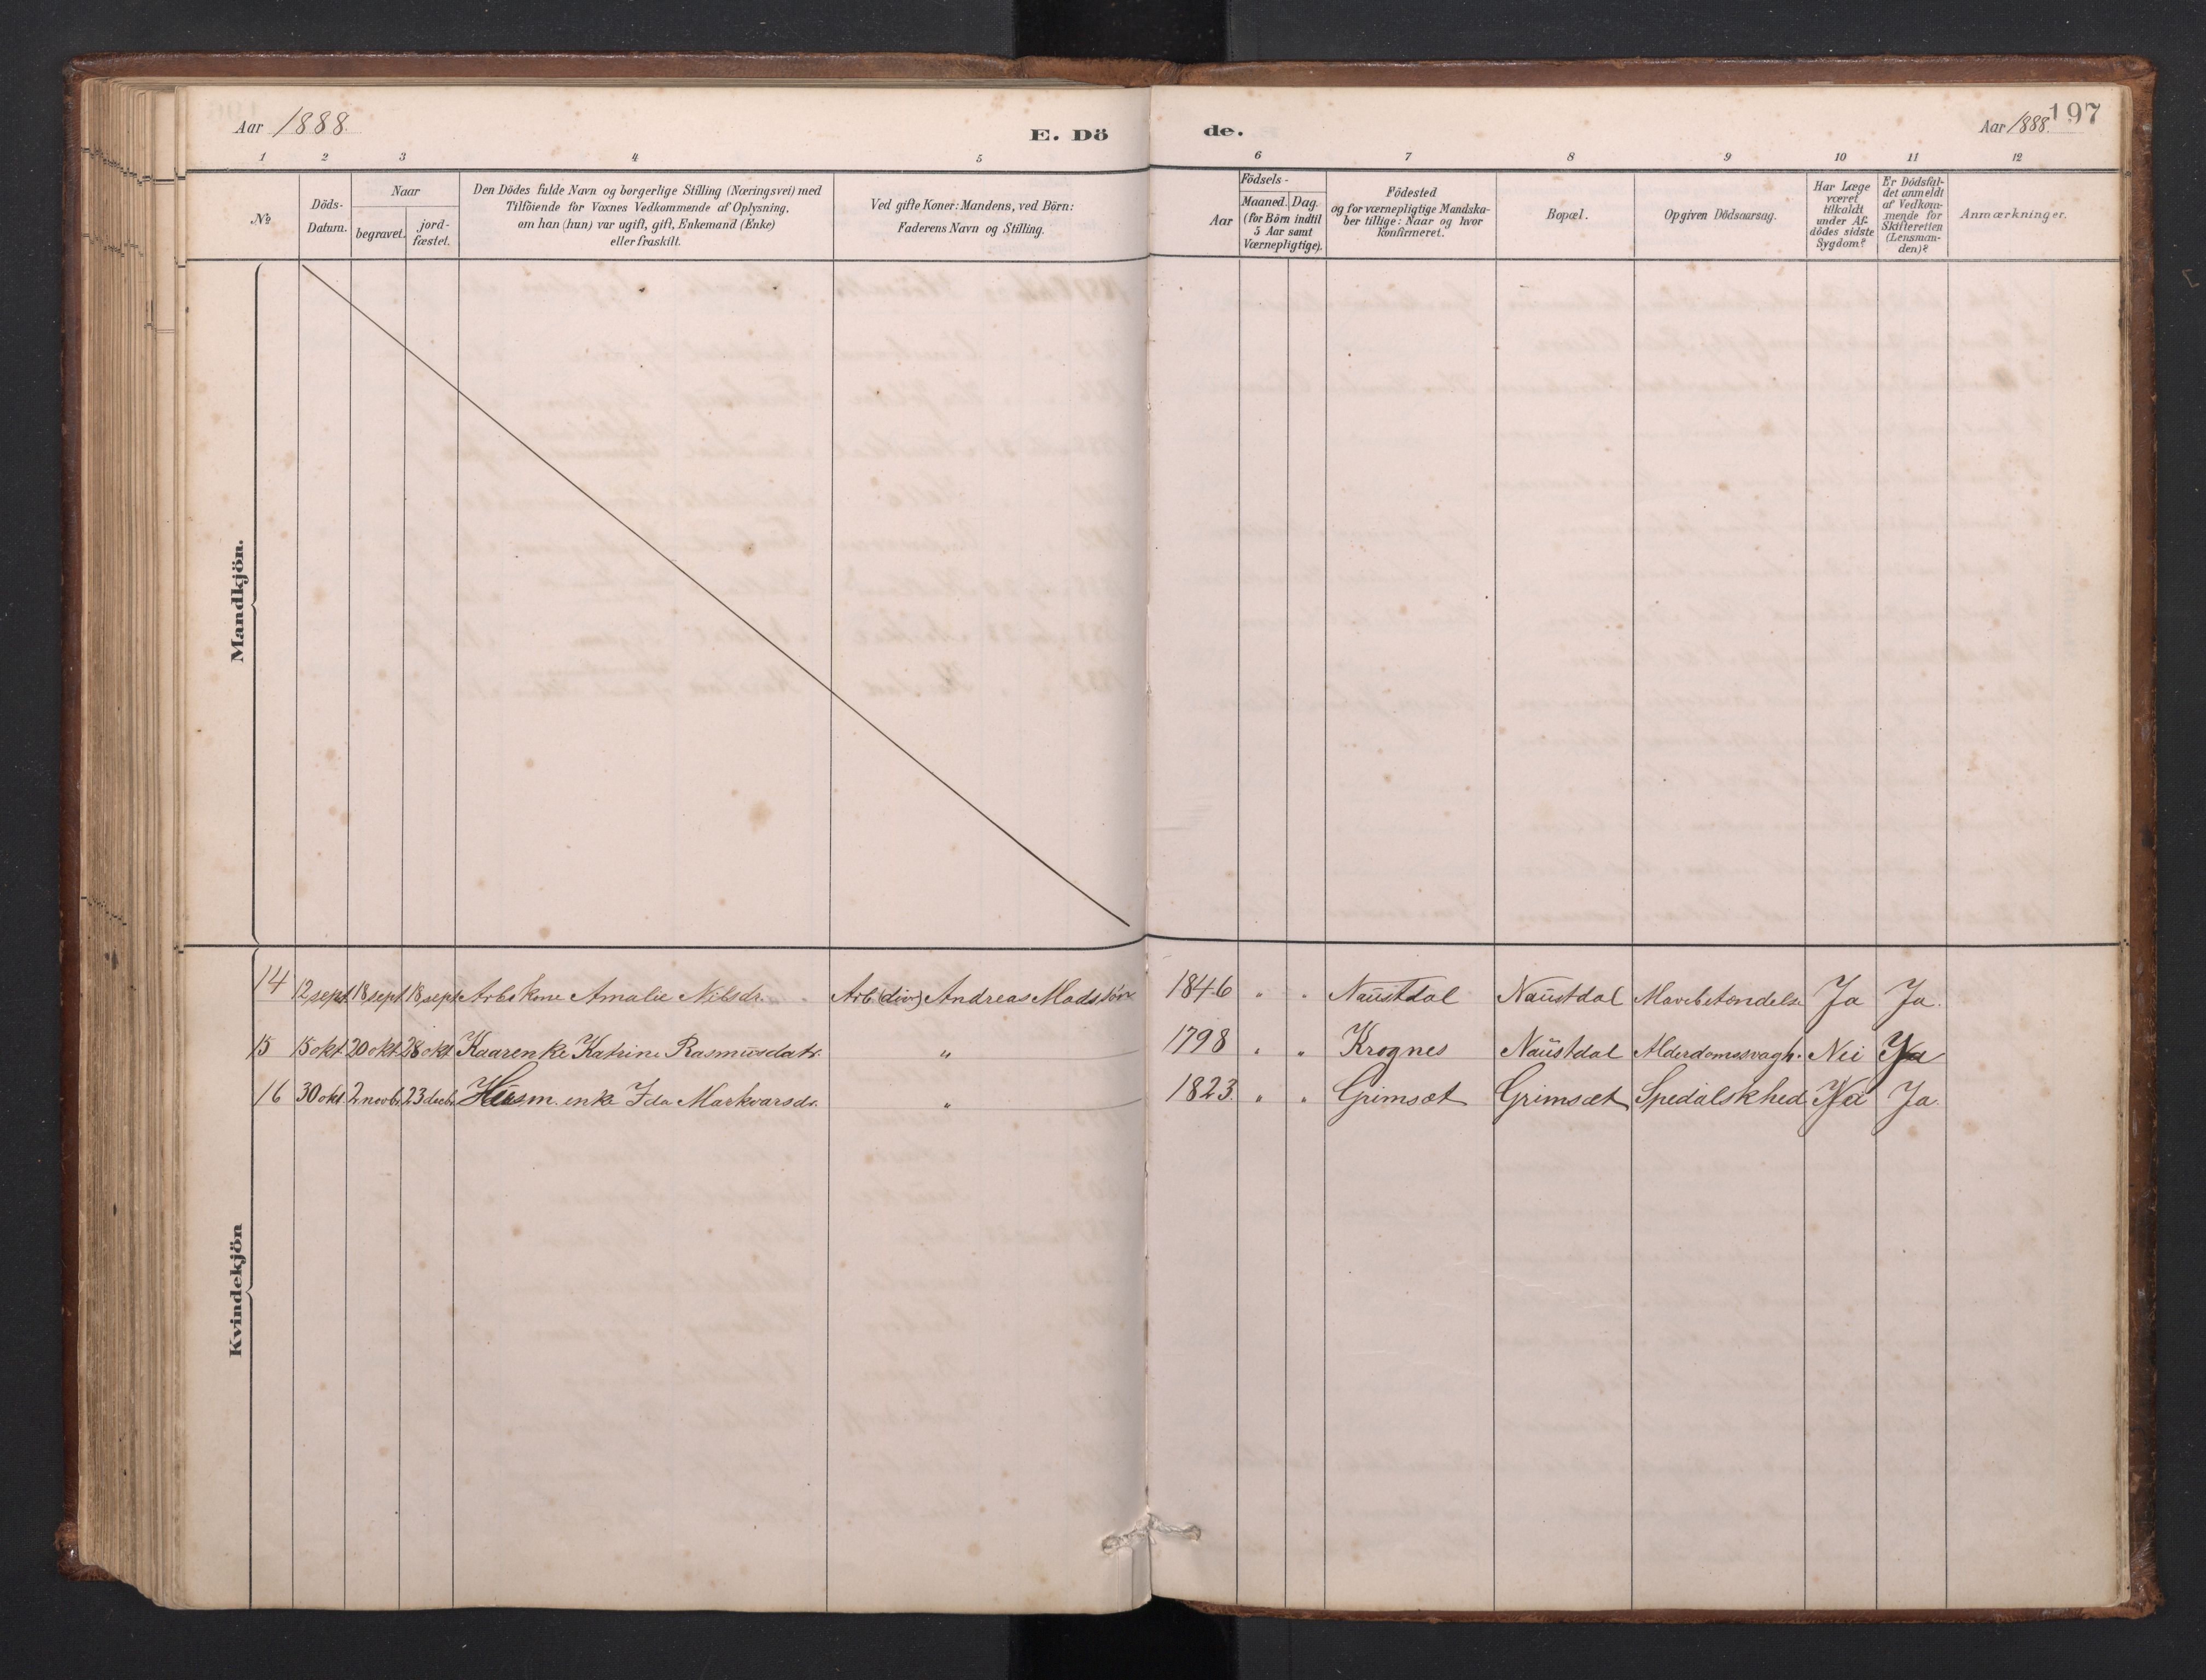 Aar 1888.
E. Dö
de.
Aar 1888.
197
1 2 3 4 5 6 7 8 9 10 11 12
No
Döds-
Datum.
Naar
begravet.
jord-
fæstet.
Den Dödes fulde Navn og borgerlige Stilling (Næringsvei) med
Tilföiende for Voxnes Vedkommende af Oplysning,
om han (hun) var ugift, gift, Enkemand (Enke)
eller fraskilt.
Ved gifte Koner: Mandens, ved Börn:
Faderens Navn og Stilling.
Aar
Födsels-
Maaned. Dag.
(for Börn indtil
5 Aar samt
Værnepligtige).
Födested
og for værnepligtige Mandska-
ber tillige: Naar og hvor
konfirmeret.
Bopæl.
Opgiven Dödsaarsag.
Har Læge
været
tilkaldt
under Af-
dödes sidste
Sygdom?
Er Dödsfal-
det anmeldt
af Vedkom-
mende for
Skifteretten
(Lensman-
den)?
Anmærkninger.
Mandkjön.
Kvindekjön
14 12 sept. 18 sept. 18 sept. Arbs kone Amalie Nilsdr. Arb. (div) Andreas Madssön 1846 " " Naustdal Naustdal Mavebetændelse Ja Ja.
15 15 okt. 20 okt. 28 okt. Kaarenke Katrine Rasmusdatr. " 1798 " " Krognes Naustdal Alderdomssvagh. Nei Ja
16 30 okt 2 novb. 23 decb. Husm. enke Ida Markvarsdr. " 1823. " " Grimsæt Grimsæt Spedalskhed Ja.